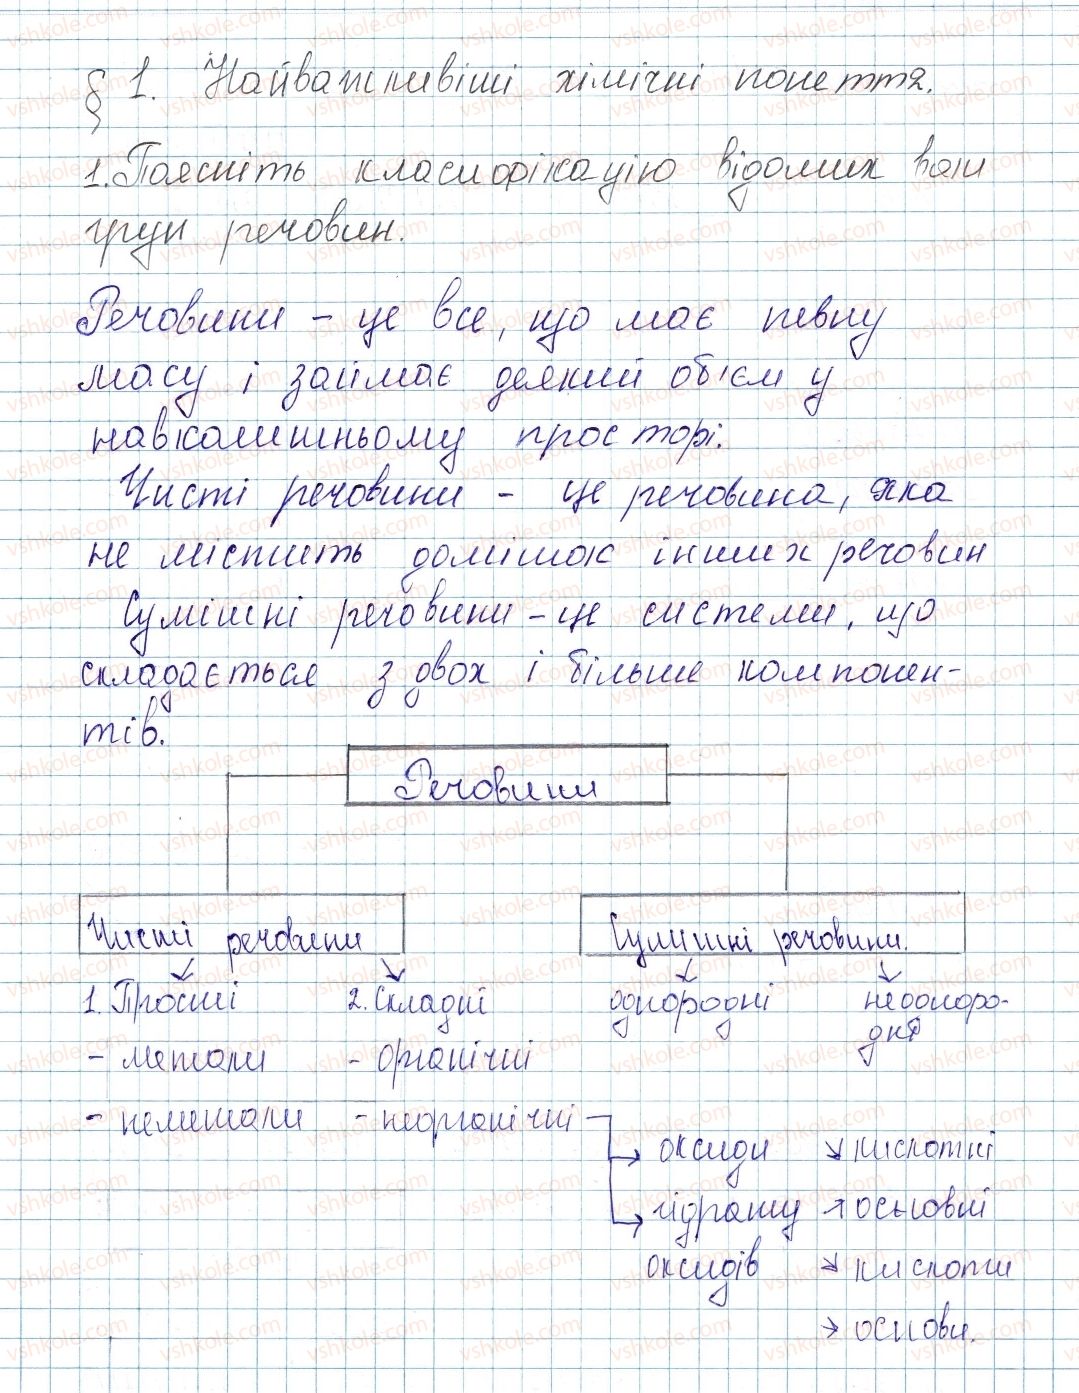 § 1. Найважливіші хімічні понеття.
1. Поясніть класифікацію відомих вам
груп речовин.
Речовини – це все, що має певну
масу і займає деякий об'єм у
навколишньому просторі.
Чисті речовини – це речовина, яка
не містить домішок інших речовин
Сумішні речовини – це системи, що
складається з двох і більше компонен-
тів.
Речовини
Чисті речовини
Сумішні речовини.
1. Прості 2. Складні однородні неодноро-
дні
- метали - органічні
- неметали - неорганічні
→ оксиди ↘ кислотні
→ гідрати → основні
оксидів ↘ кислоти
→ основи.